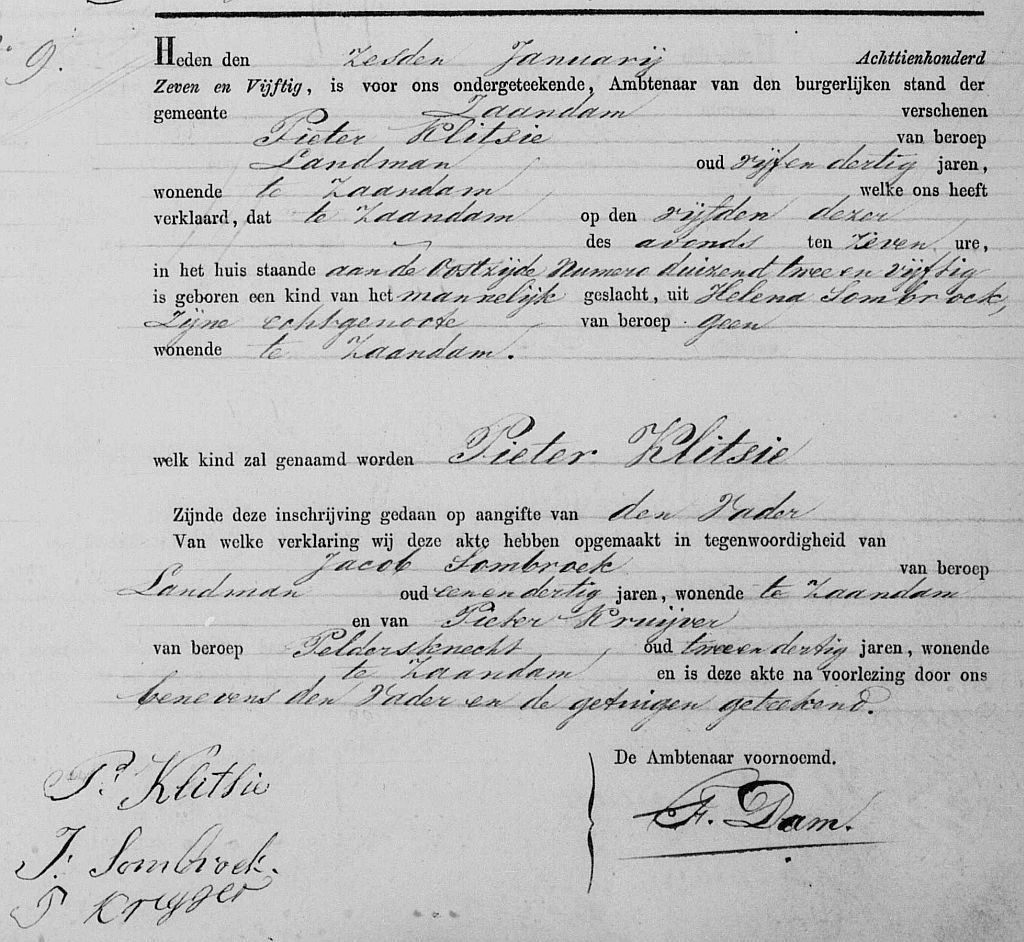 9.
Heden den Zesden Januarij Achttienhonderd
Zeven en Vijftig, is voor ons ondergeteekende, Ambtenaar van den burgerlijken stand der
gemeente Zaandam verschenen
Pieter Klitsie van beroep
Landman oud vijf en dertig jaren,
wonende te Zaandam welke ons heeft
verklaard, dat te Zaandam op den vijfden dezer
des avonds ten zeven ure,
in het huis staande aan de Oostzijde Numero duizend twee en vijftig
is geboren een kind van het mannelijk geslacht, uit Helena Sombroek,
Zijne echtgenoote van beroep geen
wonende te Zaandam.
welk kind zal genaamd worden Pieter Klitsie
Zijnde deze inschrijving gedaan op aangifte van den Vader
Van welke verklaring wij deze akte hebben opgemaakt in tegenwoordigheid van
Jacob Sombroek van beroep
Landman oud een en dertig jaren, wonende te Zaandam
en van Pieter Kruijver
van beroep Peldersknecht oud twee en dertig jaren, wonende
te Zaandam en is deze akte na voorlezing door ons
benevens den Vader en de getuigen geteekend.
De Ambtenaar voornoemd.
P. Klitsie
F. Dam.
J. Sombroek.
P Kruyger